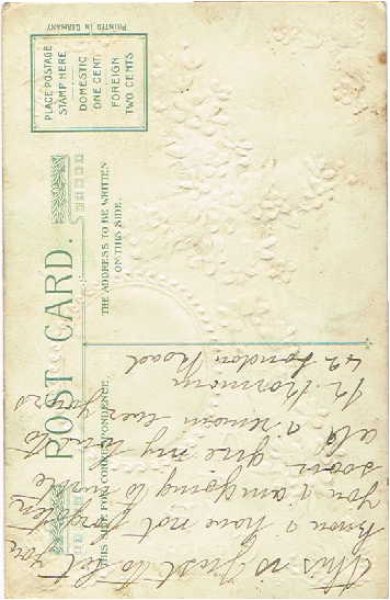 POST CARD.
THIS SIDE FOR CORRESPONDENCE.
THE ADDRESS TO BE WRITTEN
ON THIS SIDE.
PLACE POSTAGE
STAMP HERE
DOMESTIC
ONE CENT
FOREIGN
TWO CENTS
PRINTED IN GERMANY
This is just to let you
know I have not forgoten
you I am going to write
soon give my love to
all & remain ever yours
Norman
London Road